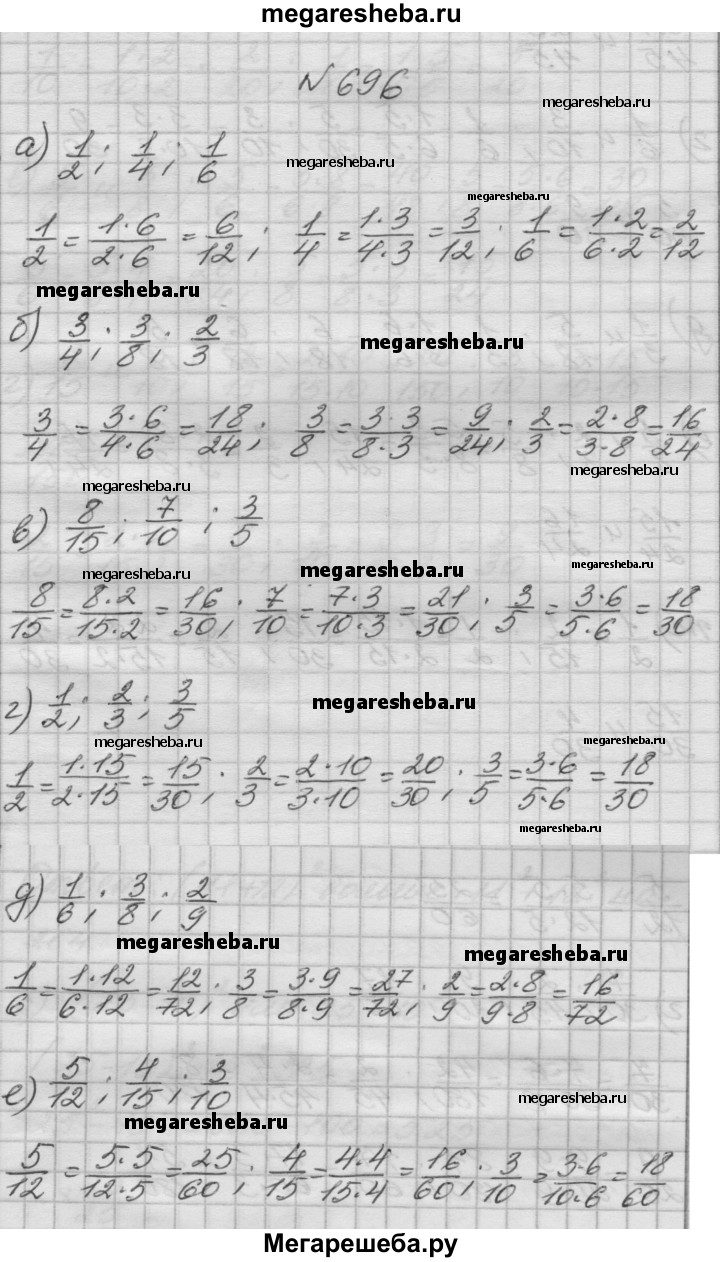 megaresheba.ru
№696
megaresheba.ru
а) 1/2; 1/4; 1/6
megaresheba.ru
megaresheba.ru
1/2 = 1·6/2·6 = 6/12; 1/4 = 1·3/4·3 = 3/12; 1/6 = 1·2/6·2 = 2/12
megaresheba.ru
б) 3/4; 3/8; 2/3
megaresheba.ru
3/4 = 3·6/4·6 = 18/24; 3/8 = 3·3/8·3 = 9/24; 2/3 = 2·8/3·8 = 16/24
megaresheba.ru
megaresheba.ru
в) 8/15; 7/10; 3/5
megaresheba.ru
megaresheba.ru
megaresheba.ru
8/15 = 8·2/15·2 = 16/30; 7/10 = 7·3/10·3 = 21/30; 3/5 = 3·6/5·6 = 18/30
г) 1/2; 2/3; 3/5
megaresheba.ru
megaresheba.ru
megaresheba.ru
1/2 = 1·15/2·15 = 15/30; 2/3 = 2·10/3·10 = 20/30; 3/5 = 3·6/5·6 = 18/30
megaresheba.ru
д) 1/6; 3/8; 2/9
megaresheba.ru
megaresheba.ru
1/6 = 1·12/6·12 = 12/72; 3/8 = 3·9/8·9 = 27/72; 2/9 = 2·8/9·8 = 16/72
е) 5/12; 4/15; 3/10
megaresheba.ru
megaresheba.ru
5/12 = 5·5/12·5 = 25/60; 4/15 = 4·4/15·4 = 16/60; 3/10 = 3·6/10·6 = 18/60
Мегарешеба.ру